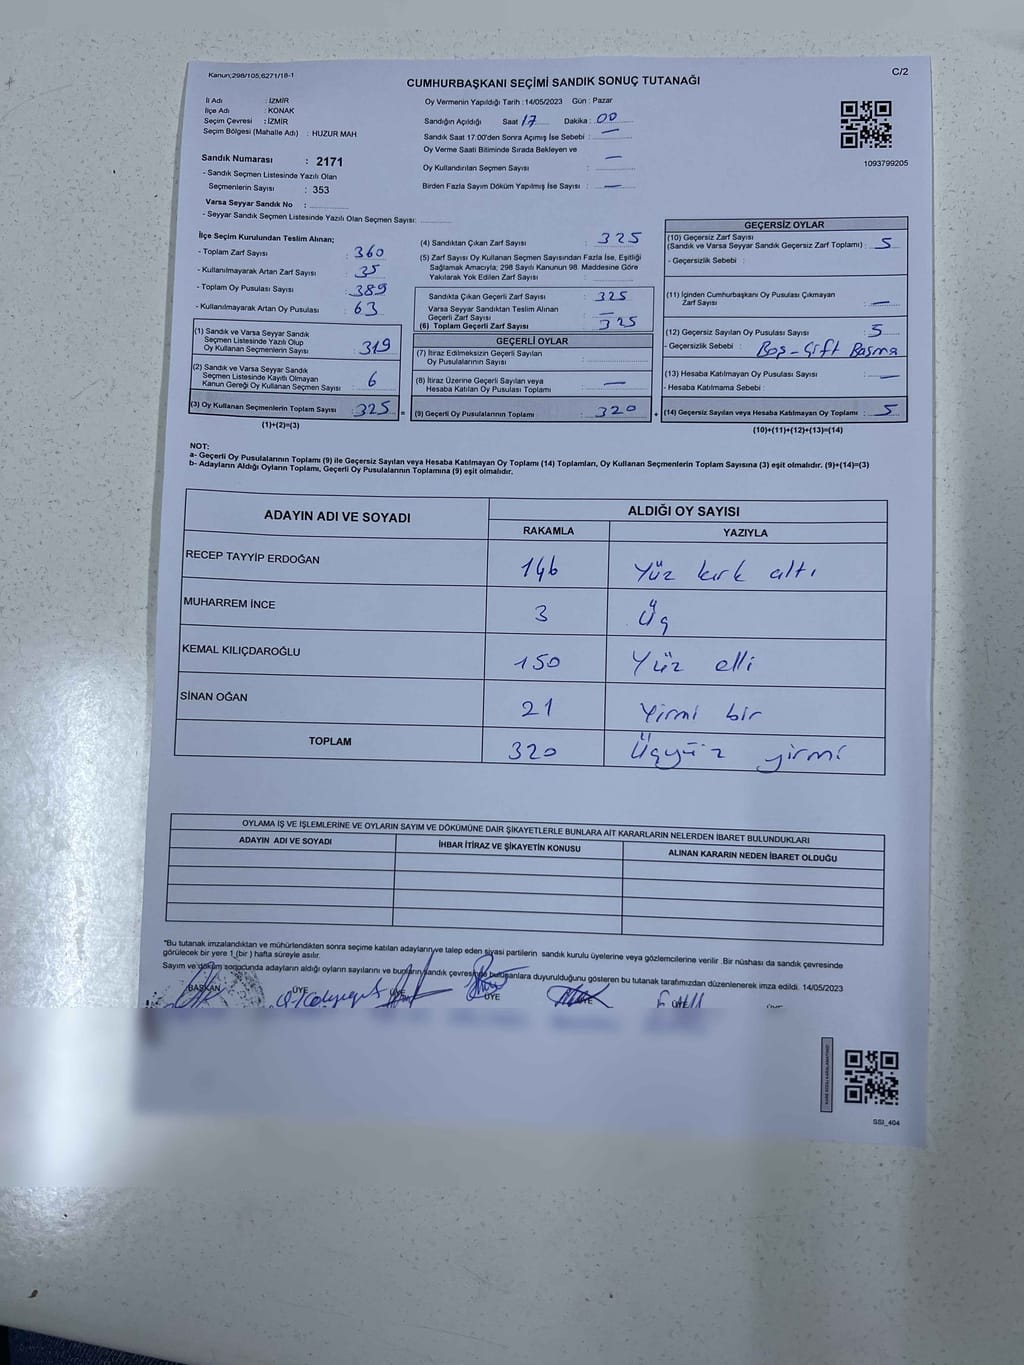 Kanun;298/105,6271/18-1
C/2
CUMHURBAŞKANI SEÇİMİ SANDIK SONUÇ TUTANAĞI
İl Adı : İZMİR
İlçe Adı : KONAK
Seçim Çevresi : İZMİR
Seçim Bölgesi (Mahalle Adı) : HUZUR MAH
Sandık Numarası : 2171
- Sandık Seçmen Listesinde Yazılı Olan
Seçmenlerin Sayısı : 353
Varsa Seyyar Sandık No :
- Seyyar Sandık Seçmen Listesinde Yazılı Olan Seçmen Sayısı:
Oy Vermenin Yapıldığı Tarih : 14/05/2023 Gün : Pazar
Sandığın Açıldığı Saat 17 Dakika : 00
Sandık Saat 17:00'den Sonra Açımış İse Sebebi : —
Oy Verme Saati Bitiminde Sırada Bekleyen ve
Oy Kullandırılan Seçmen Sayısı : —
Birden Fazla Sayım Döküm Yapılmış İse Sayısı : —
1093799205
İlçe Seçim Kurulundan Teslim Alınan;
- Toplam Zarf Sayısı : 360
- Kullanılmayarak Artan Zarf Sayısı : 35
- Toplam Oy Pusulası Sayısı : 389
- Kullanılmayarak Artan Oy Pusulası : 63
(1) Sandık ve Varsa Seyyar Sandık
Seçmen Listesinde Yazılı Olup
Oy Kullanan Seçmenlerin Sayısı : 319
(2) Sandık ve Varsa Seyyar Sandık
Seçmen Listesinde Kayıtlı Olmayan
Kanun Gereği Oy Kullanan Seçmen Sayısı : 6
(3) Oy Kullanan Seçmenlerin Toplam Sayısı : 325 =
(1)+(2)=(3)
(4) Sandıktan Çıkan Zarf Sayısı : 325
(5) Zarf Sayısı Oy Kullanan Seçmen Sayısından Fazla İse, Eşitliği
Sağlamak Amacıyla; 298 Sayılı Kanunun 98. Maddesine Göre
Yakılarak Yok Edilen Zarf Sayısı :
Sandıkta Çıkan Geçerli Zarf Sayısı : 325
Varsa Seyyar Sandıktan Teslim Alınan
Geçerli Zarf Sayısı : —
(6) Toplam Geçerli Zarf Sayısı : 325
GEÇERLİ OYLAR
(7) İtiraz Edilmeksizin Geçerli Sayılan
Oy Pusulalarının Sayısı :
(8) İtiraz Üzerine Geçerli Sayılan veya
Hesaba Katılan Oy Pusulası Toplamı : —
(9) Geçerli Oy Pusulalarının Toplamı : 320 +
GEÇERSİZ OYLAR
(10) Geçersiz Zarf Sayısı
(Sandık ve Varsa Seyyar Sandık Geçersiz Zarf Toplamı) : 5
- Geçersizlik Sebebi :
(11) İçinden Cumhurbaşkanı Oy Pusulası Çıkmayan
Zarf Sayısı : —
(12) Geçersiz Sayılan Oy Pusulası Sayısı : 5
- Geçersizlik Sebebi : Boş - Çift Basma
(13) Hesaba Katılmayan Oy Pusulası Sayısı : —
- Hesaba Katılmama Sebebi :
(14) Geçersiz Sayılan veya Hesaba Katılmayan Oy Toplamı : 5
(10)+(11)+(12)+(13)=(14)
NOT:
a- Geçerli Oy Pusulalarının Toplamı (9) ile Geçersiz Sayılan veya Hesaba Katılmayan Oy Toplamı (14) Toplamları, Oy Kullanan Seçmenlerin Toplam Sayısına (3) eşit olmalıdır. (9)+(14)=(3)
b- Adayların Aldığı Oyların Toplamı, Geçerli Oy Pusulalarının Toplamına (9) eşit olmalıdır.
ADAYIN ADI VE SOYADI ALDIĞI OY SAYISI
RAKAMLA YAZIYLA
RECEP TAYYİP ERDOĞAN 146 Yüz kırk altı
MUHARREM İNCE 3 Üç
KEMAL KILIÇDAROĞLU 150 Yüz elli
SİNAN OĞAN 21 Yirmi bir
TOPLAM 320 Üçyüz yirmi
OYLAMA İŞ VE İŞLEMLERİNE VE OYLARIN SAYIM VE DÖKÜMÜNE DAİR ŞİKAYETLERLE BUNLARA AİT KARARLARIN NELERDEN İBARET BULUNDUKLARI
ADAYIN ADI VE SOYADI İHBAR İTİRAZ VE ŞİKAYETİN KONUSU ALINAN KARARIN NEDEN İBARET OLDUĞU
"Bu tutanak imzalandıktan ve mühürlendikten sonra seçime katılan adayların ve talep eden siyasi partilerin sandık kurulu üyelerine veya gözlemcilerine verilir .Bir nüshası da sandık çevresinde
görülecek bir yere 1 (bir ) hafta süreyle asılır.
Sayım ve döküm sonucunda adayların aldığı oyların sayılarını ve bunların sandık çevresinde bulunanlara duyurulduğunu gösteren bu tutanak tarafımızdan düzenlenerek imza edildi. 14/05/2023
BAŞKAN ÜYE ÜYE ÜYE ÜYE ÜYE
SSI_404